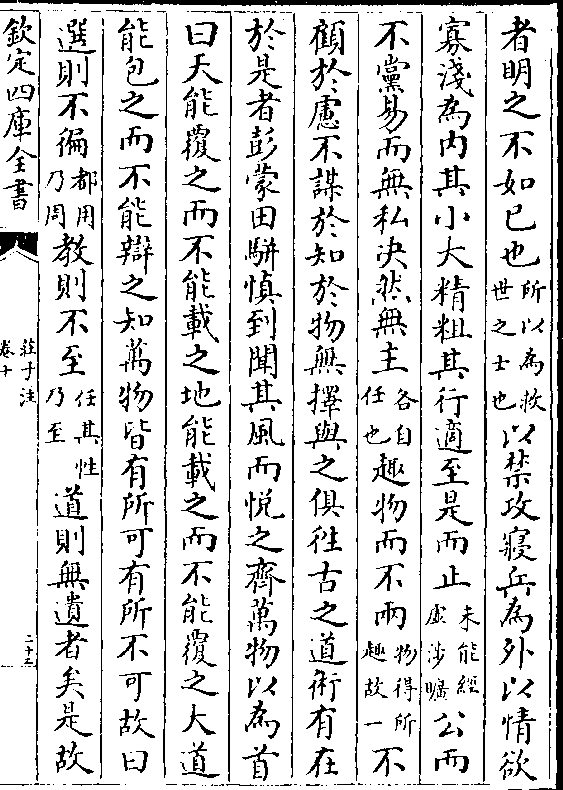 者明之不如已也所以為救世之士也以禁攻寢兵為外以情欲
寡淺為内其小大精粗其行適至是而止未能經虛涉曠公而
不黨易而無私决然無主各自任也趣物而不兩物得所趣故一不
顧於慮不謀於知於物無擇與之俱徃古之道術有在
於是者彭蒙田駢慎到聞其風而悦之齊萬物以為首
曰天能覆之而不能載之地能載之而不能覆之大道
能包之而不能辯之知萬物皆有所可有所不可故曰
選則不徧都用乃周教則不至任其性乃至道則無遺者矣是故
欽定四庫全書
莊子注
卷十
二十五